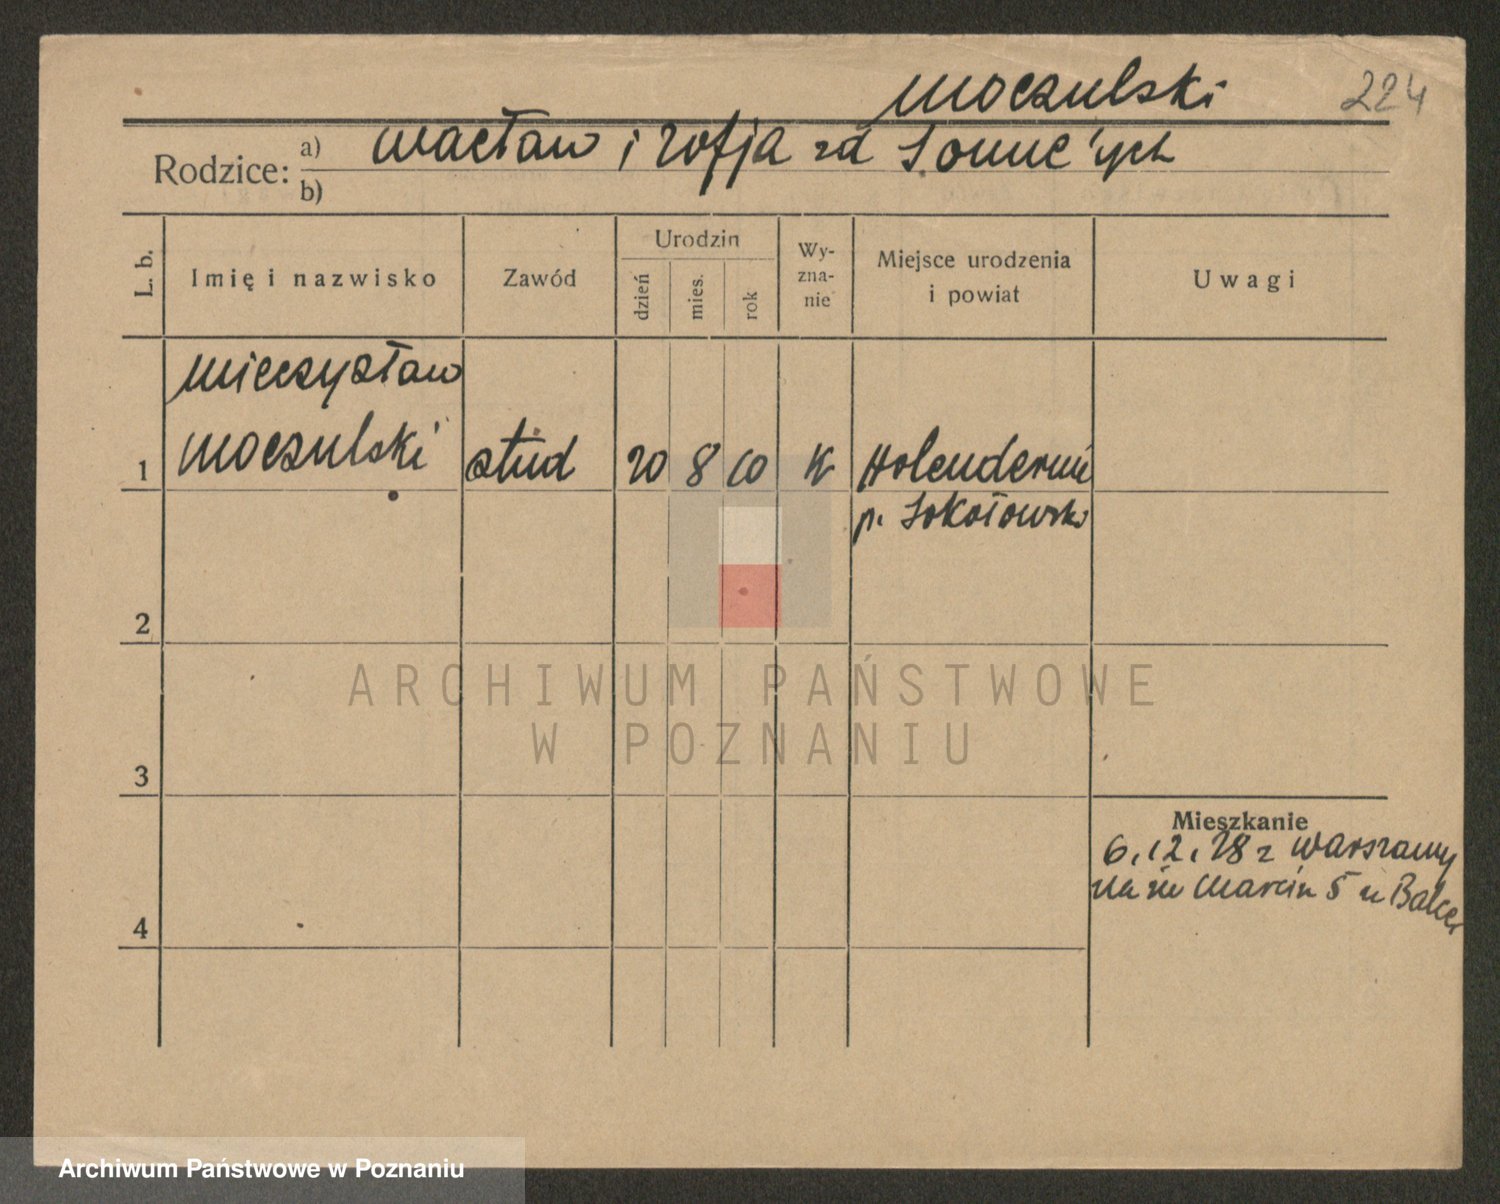 Moczulski 224
Rodzice: a) Wacław i Zofja zd
b)
L. b.
Imię i nazwisko
Zawód
Urodzin
dzień
mies.
rok
Wy-
zna-
nie
Miejsce urodzenia
i powiat
Uwagi
Mieczysław
1 Moczulski stud 20 8 10 K Holendernia
p. Sokołowski
2
ARCHIWUM PAŃSTWOWE
W POZNANIU
3
Mieszkanie
6.12.28 z Warszawy
Marcin 5 u Balcer
4
Archiwum Państwowe w Poznaniu